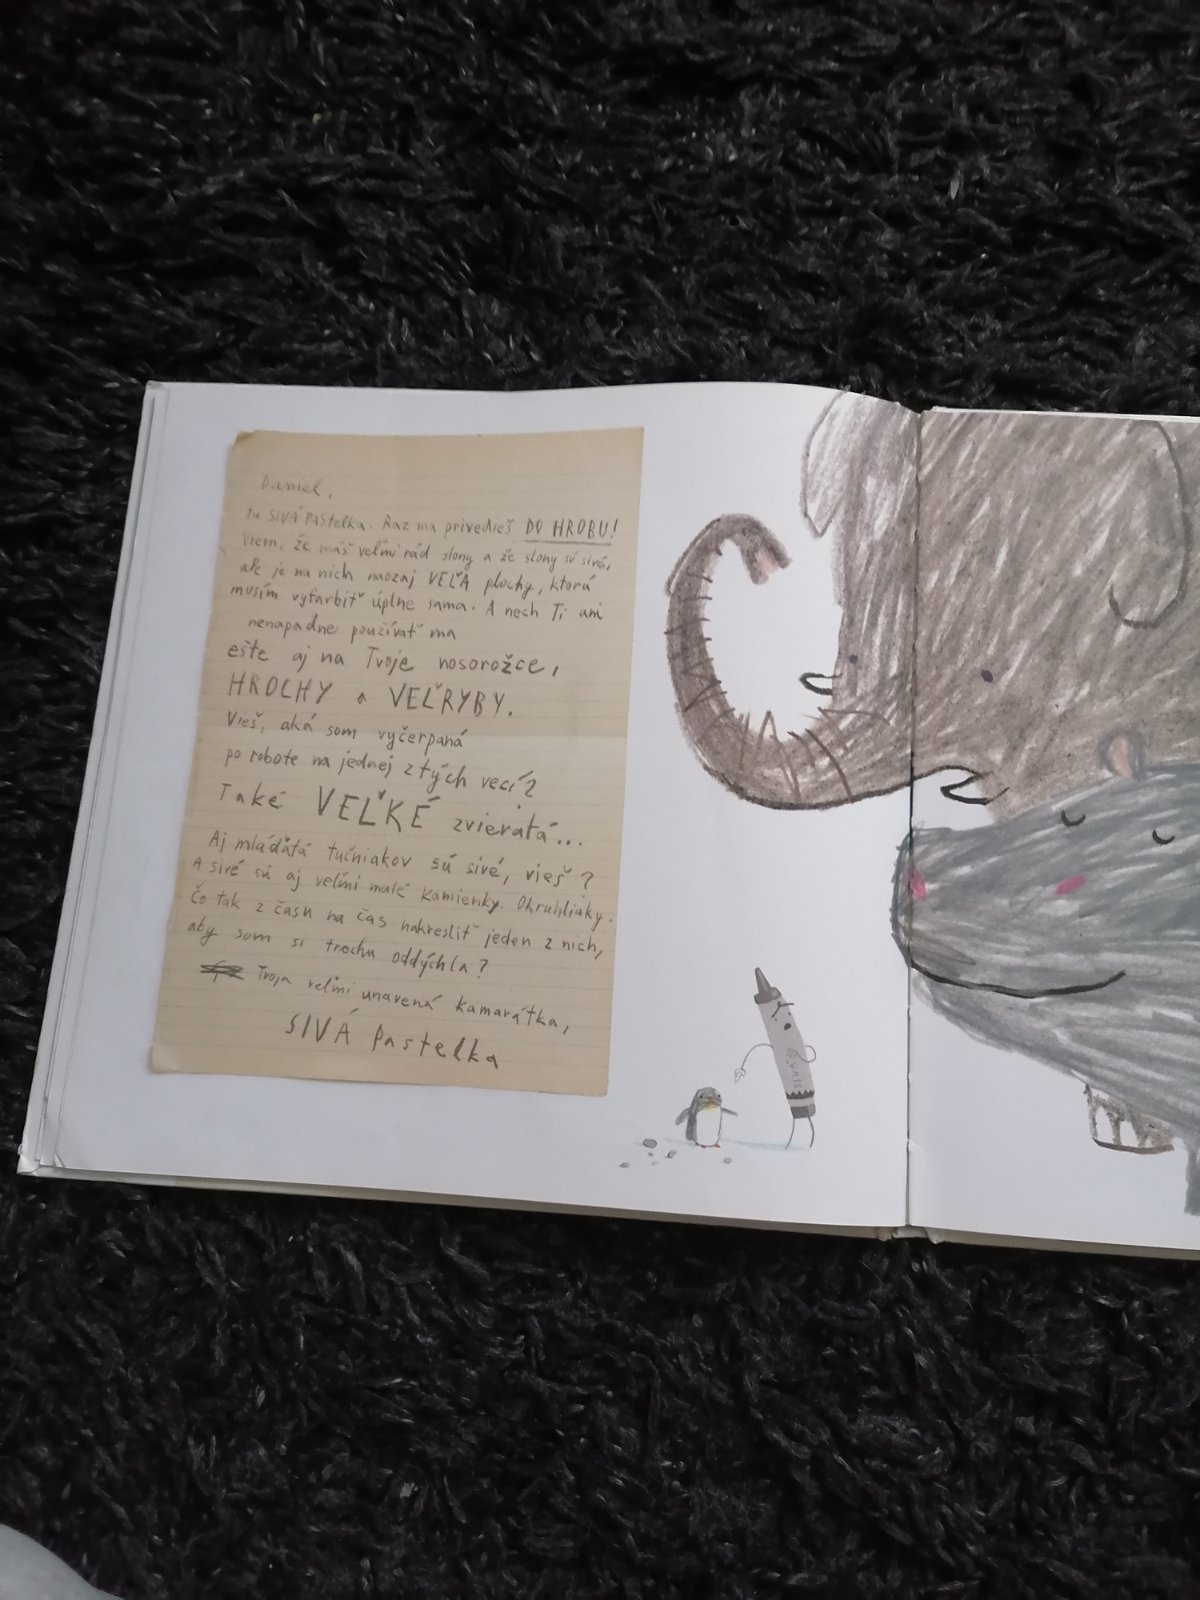 Daniel,
tu SIVÁ PASTelka. Raz ma privedieš DO HROBU!
Viem, že máš veľmi rád slony a že slony sú sivé,
ale je na nich naozaj VEĽA plochy, ktorú
musím vyfarbiť úplne sama. A nech Ti ani
nenapadne používať ma
ešte aj na Tvoje nosorožce,
HROCHY a VEĽRYBY.
Vieš, aká som vyčerpaná
po robote na jednej z tých vecí?
Také VEĽKÉ zvieratá...
Aj mláďatá tučniakov sú sivé, vieš?
A sivé sú aj veľmi malé kamienky. Okruhliaky.
Čo tak z času na čas nakresliť jeden z nich,
aby som si trochu oddýchla?
Tvoja veľmi unavená kamarátka,
SIVÁ Pastelka